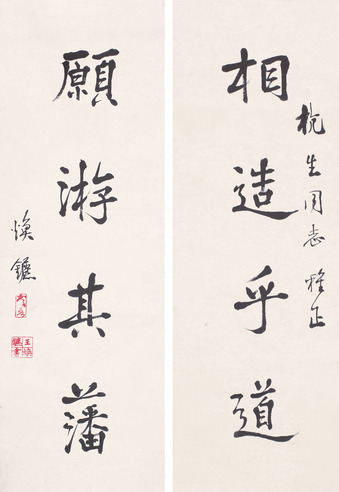 相造乎道
生同志雅正
願游其藩
煥鑣
王煥鑣書